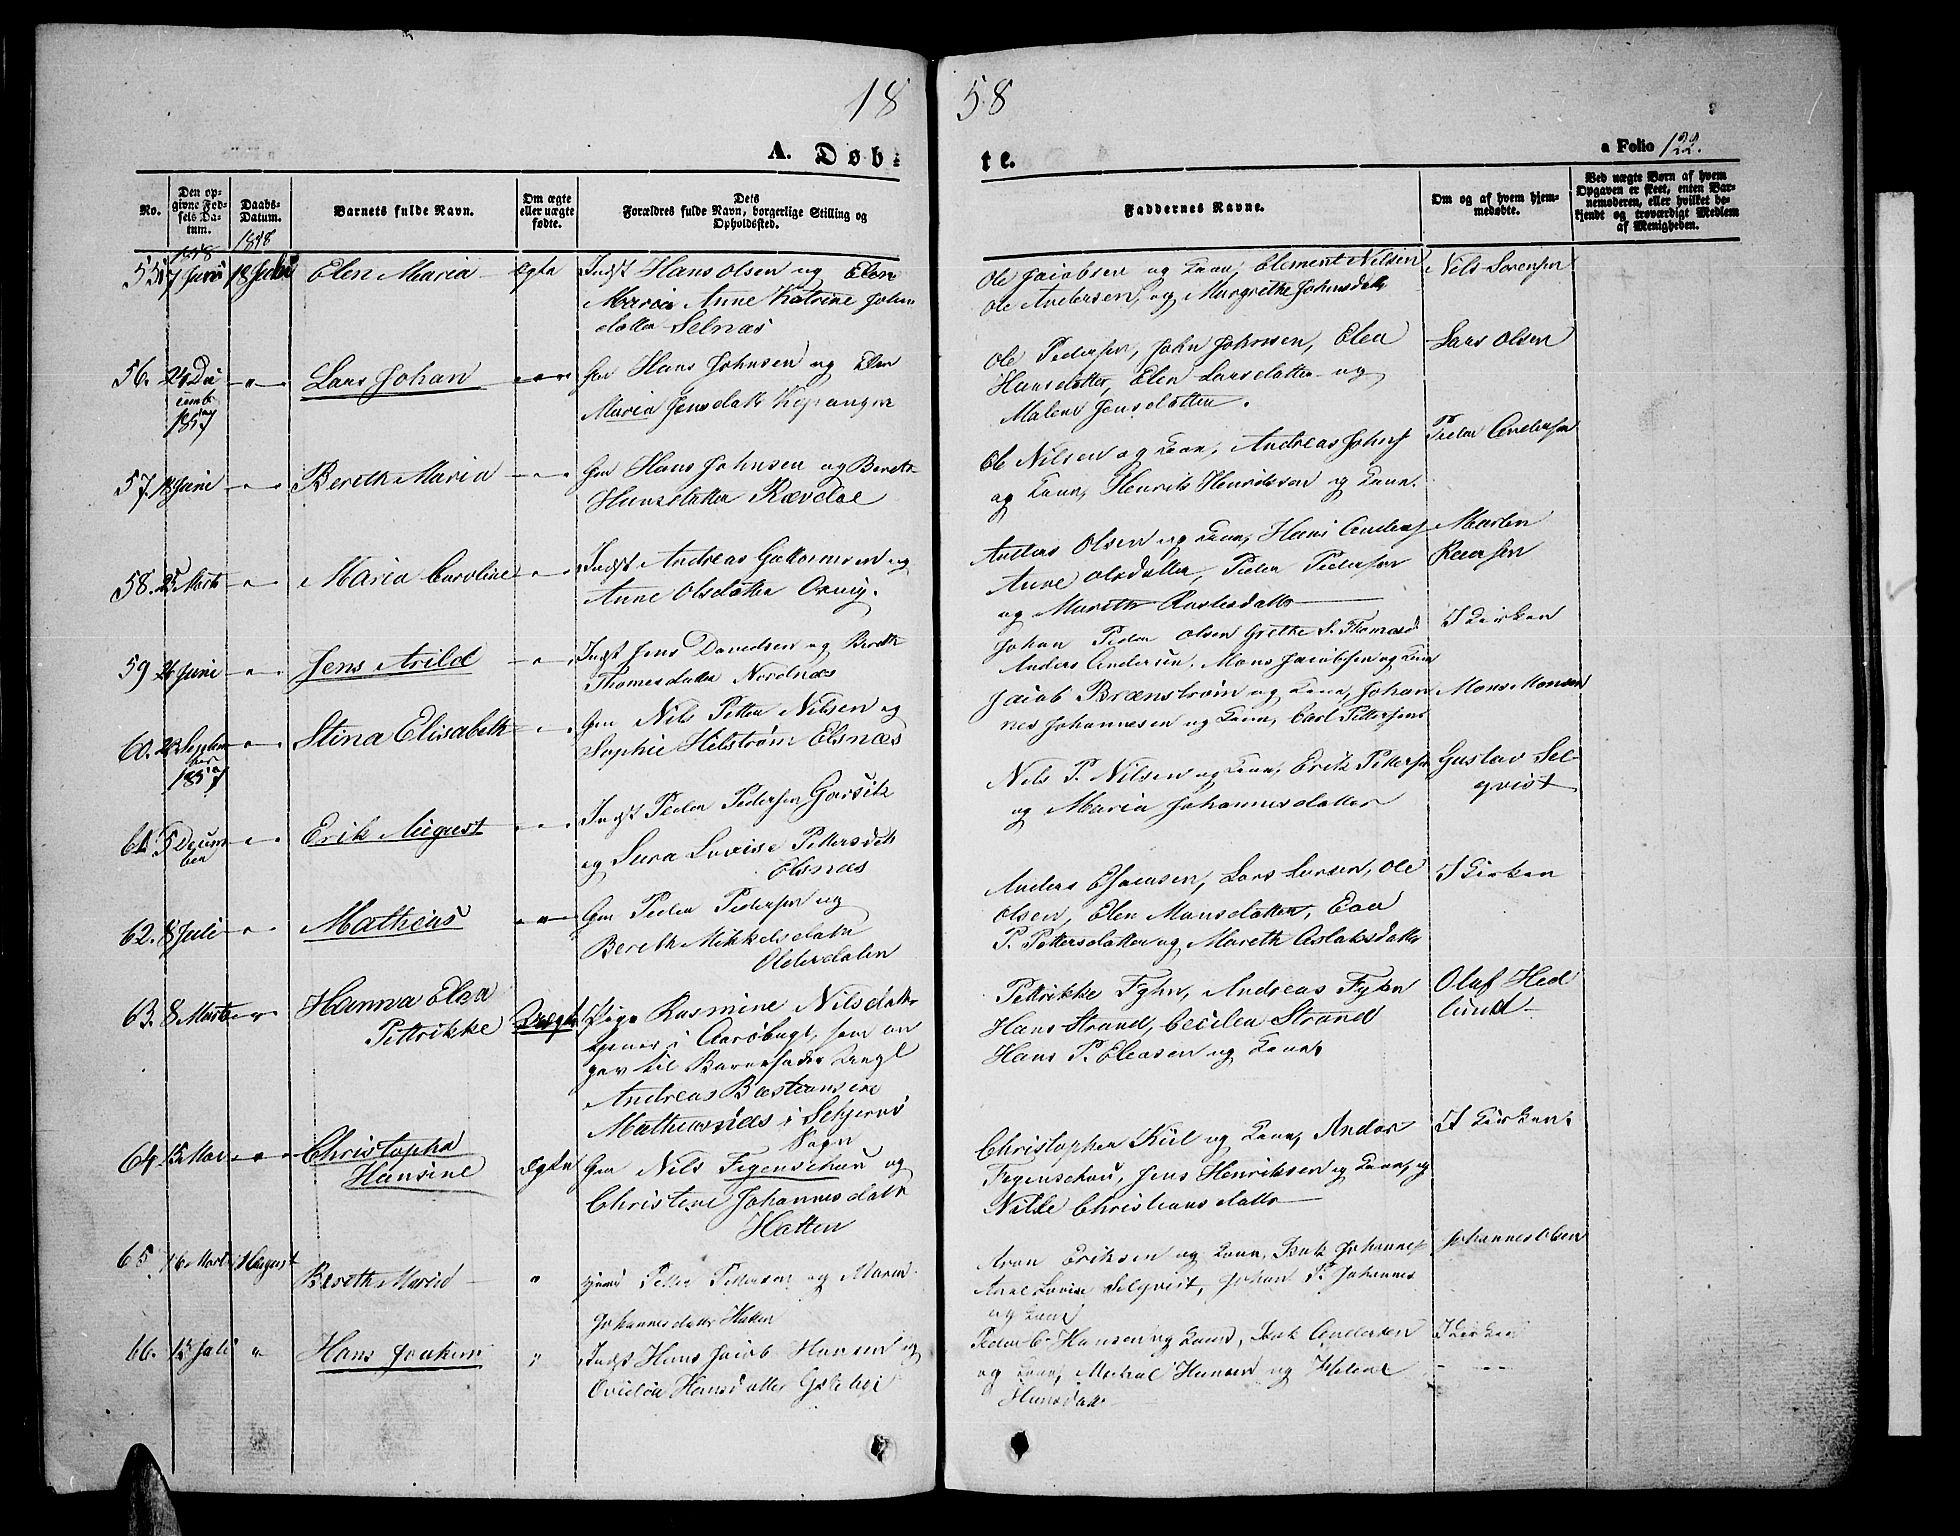 18 58
A. Døb-
te.
a Folio 122.
No.
Den op-
givne Fød-
sels Da-
tum.
Daabs-
Datum.
Barnets fulde Navn.
Om ægte
eller uægte
fødte.
Dets
Forældres fulde Navn, borgerlige Stilling og
Opholdssted.
Faddernes Navne.
Om og af hvem hjem-
medøbte.
Ved uægte Børn af hvem
Opgaven er skeet, enten Bar-
nemoderen, eller hvilket be-
kjendt og troværdigt Medlem
af Menigheden.
1858
1858
55 Elen Maria ægte Indst Hans Olsen og Elen
Anne Katrine Johns
datter Selnæs
Ole Jacobsen og Kone, Clement Nilsen
Ole Andersen, og Margrethe Johnsdatter
Nils Sørensen
56. 24 De
cemb
1857
Lars Johan Hans Johnsen og Elen
Maria Jensdatr
Ole Pedersen, John Johnsen, Elen
Hansdatter, Elen Larsdatter og
Malene Jensdatter.
Lars Olsen
57. 18 Juni Bereth Maria Hans Johnsen og Bereth
Hansdatter
Ole Nilsen og Kone, Andreas Johns
og Kone, Henrik Henriksen og Kone.
Peder Andersen
58. 25 Marts Maria Caroline Indst Andreas Guttormsen og
Anne Olsdatter
Anders Olsen og Kone, Hans Anders
Anne Olsdatter, Peder Pedersen
og Mareth
Morten
59 26 Juni Jens Arild Indst Jens Davidsen og Bereth
Thomasdatter Nordnæs
Johan Peder Olsen Grethe S. Thomasd
Anders Andersen, Mons Jacobsen og Kone
I Kirken
60. 23 Septem
ber
1857
Stina Elisabeth Nils Petter Nilsen og
Sophie Helstrøm Elsnæs
Jacob Brænstrøm og Kone, Johan
nes Johannesen og Kone, Carl Pettersen
Mons Monsen
61. 5 Decem
ber
Erik August Indst Peder Pedersen
og Sara Lovise Pettersdatr
Elsnæs
Nils P. Nilsen og Kone, Erik Pettersen
og Maria Johannesdatter
Gustav Sel
qvist
62. 8 Juli Matheus Peder Pedersen og
Bereth Mikkelsdatr
Olderdalen
Anders Esaiasen, Lars Larsen, Ole
Olsen, Elen Monsdatter, Eva
P. Pettersdatter og Mareth Aslaksdatter
I Kirken
63. 8 Marts Hanna Elea
Petrikke
Uægte Pige Rasmine Nilsdatr
tjener i Aarøbugt, som an
gav til Barnefader Ungk
Andreas Bastiansen
Mathisnæs i Skjervø
Sogn
Petrikke Fyhn, Andreas Fyhn
Hans Strand, Cecilia Strand
Hans P. Eleasen og Kone
Oluf Hed
lund
64. 15 Mai Christopha
Hansine
ægte Nils Fegenschou og
Christine Johannesdatr
Hatten
Christopher Kiil og Kone, Andor
Fegenschou, Jens Henriksen og Kone, og
Nille Christiansdatter
I Kirken
65. 16 Marts August Bereth Maria Petter Pettersen og Maren
Johannesdatter Hatten
Aron Eriksen og Kone, Isak Johannes
Ane Lovise Selqvist, Johan P. Johannes
og Kone
Johannes Olsen
66. 15 Juli Hans Joakim Indst Hans Jacob Hansen og
Hansdatter
Peder C. Hansen og Kone, Isak Andersen
og Kone, Mikal Hansen og Helene
Hansdatr
I Kirken